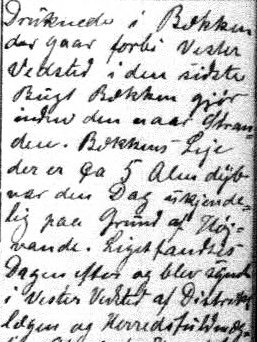 Druknede i Bækken
der gaar forbi Vester
Vedsted i den sidste
Bugt Bækken gjør
inden den naar Stran-
den. Bækkens Leje
der er Ca 5 Alen dÿb
var den Dag ukjende-
lig paa Grund af Høj-
vande. Liget fandtes
Dagen efter og blev synet
i Vester Vedsted af Distrikts
lægen og Herredsfuldmæg-